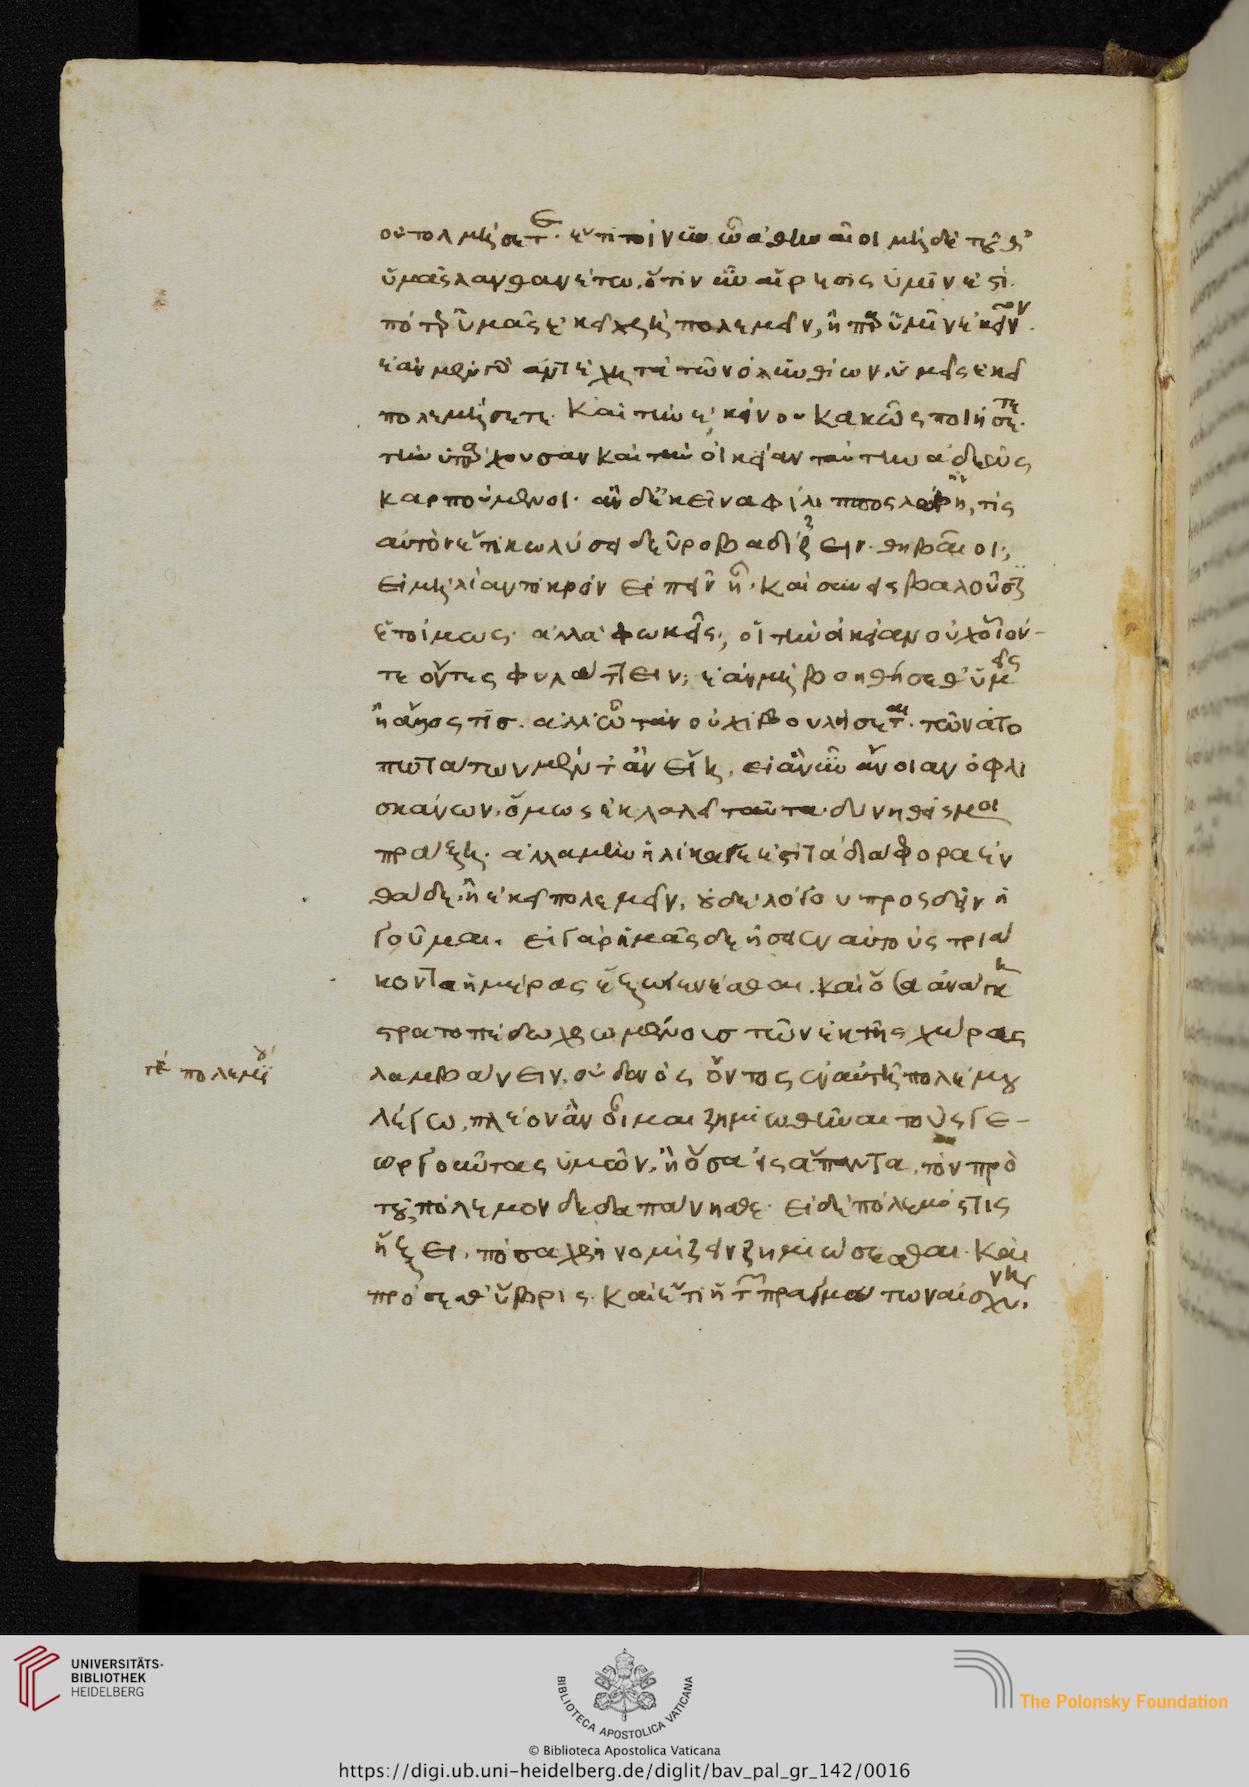 οὐ τολμήσετε. ἔτι τοίνυν ὦ ἄθην αῖοι μηδὲ τοῦθ'
ὑμᾶς λανθανέτω, ὅτι νῦν αἵρησις ὑμῖν ἐστὶ
πότερ' ὑμᾶς ἐκεῖ χρὴ πολεμεῖν, ἢ παρ' ὑμῖν ἐκεῖνον.
ἐὰν μὲν γὰρ ἀντέχῃ τὰ τῶν ὀλυνθίων, ὑμεῖς ἐκεῖ
πολεμήσετε. καὶ τὴν ἐκείνου κακῶς ποιήσετε.
τὴν ὑπάρχουσαν καὶ τὴν οἰκείαν ταύτην ἀδεῶς
καρπούμενοι. ἂν δ' ἐκεῖνα φίλιππος λάβῃ, τίς
αὐτὸν ἔτι κωλύσει δεῦρο βαδίζειν. θηβαῖοι;
εἰ μὴ λίαν πικρὸν εἰπεῖν ᾖ. καὶ συνεισβαλοῦσιν
ἑτοίμως. ἀλλὰ φωκεῖς; οἱ τὴν οἰκείαν οὐχ οἷοί
τε ὄντες φυλάττειν; ἐὰν μὴ βοηθήσεθ' ὑμεῖς
ἢ ἄλλος τίς. ἀλλ' ὦ τὰν οὐχὶ βουλήσεται. τῶν ἀτο
πωτάτων μὲντ' ἂν εἴη, εἰ ἃ νῦν ἄνοιαν ὀφλι
σκάνων, ὅμως ἐκλαλεῖ ταῦτα δυνηθεὶς μὴ
πράξει. ἀλλὰ μὴν ἡλίκα γ' ἐστὶ τὰ διάφορα ἐν
θάδε, ἢ ἐκεῖ πολεμεῖν, οὐδὲ λόγου προσδεῖν ἡ
γοῦμαι. εἰ γὰρ ἡμᾶς δεήσειεν αὐτοὺς τριά
κοντα ἡμέρας ἔξω γενέσθαι. καὶ ὅσα ἀνάγκη
στρατοπέδω χρωμένοις τῶν ἐκ τῆς χώρας
λαμβάνειν, οὐδενὸς ὄντος ἐν αὐτῇ πολέμου
λέγω, πλέον ἂν οἶμαι ζημιωθῆναι τοὺς γε-
ωργοῦντας ὑμῶν, ἢ ὅσα εἰς ἅπαντα, τὸν πρὸ
τοῦ πόλεμον δεδαπάνησθε. εἰ δὲ πόλεμός τις
ἥξει, πόσα χρὴ νομίζειν ζημιώσεσθαι. καὶ
πρόσεσθ' ὕβρις. καὶ ἔτι ἡ τῶν πραγμάτων αἰσχύνη.
© Biblioteca Apostolica Vaticana
https://digi.ub.uni-heidelberg.de/diglit/bav_pal_gr_142/0016
UNIVERSITÄTS-
BIBLIOTHEK
HEIDELBERG
BIBLIOTECA APOSTOLICA VATICANA
The Polonsky Foundation